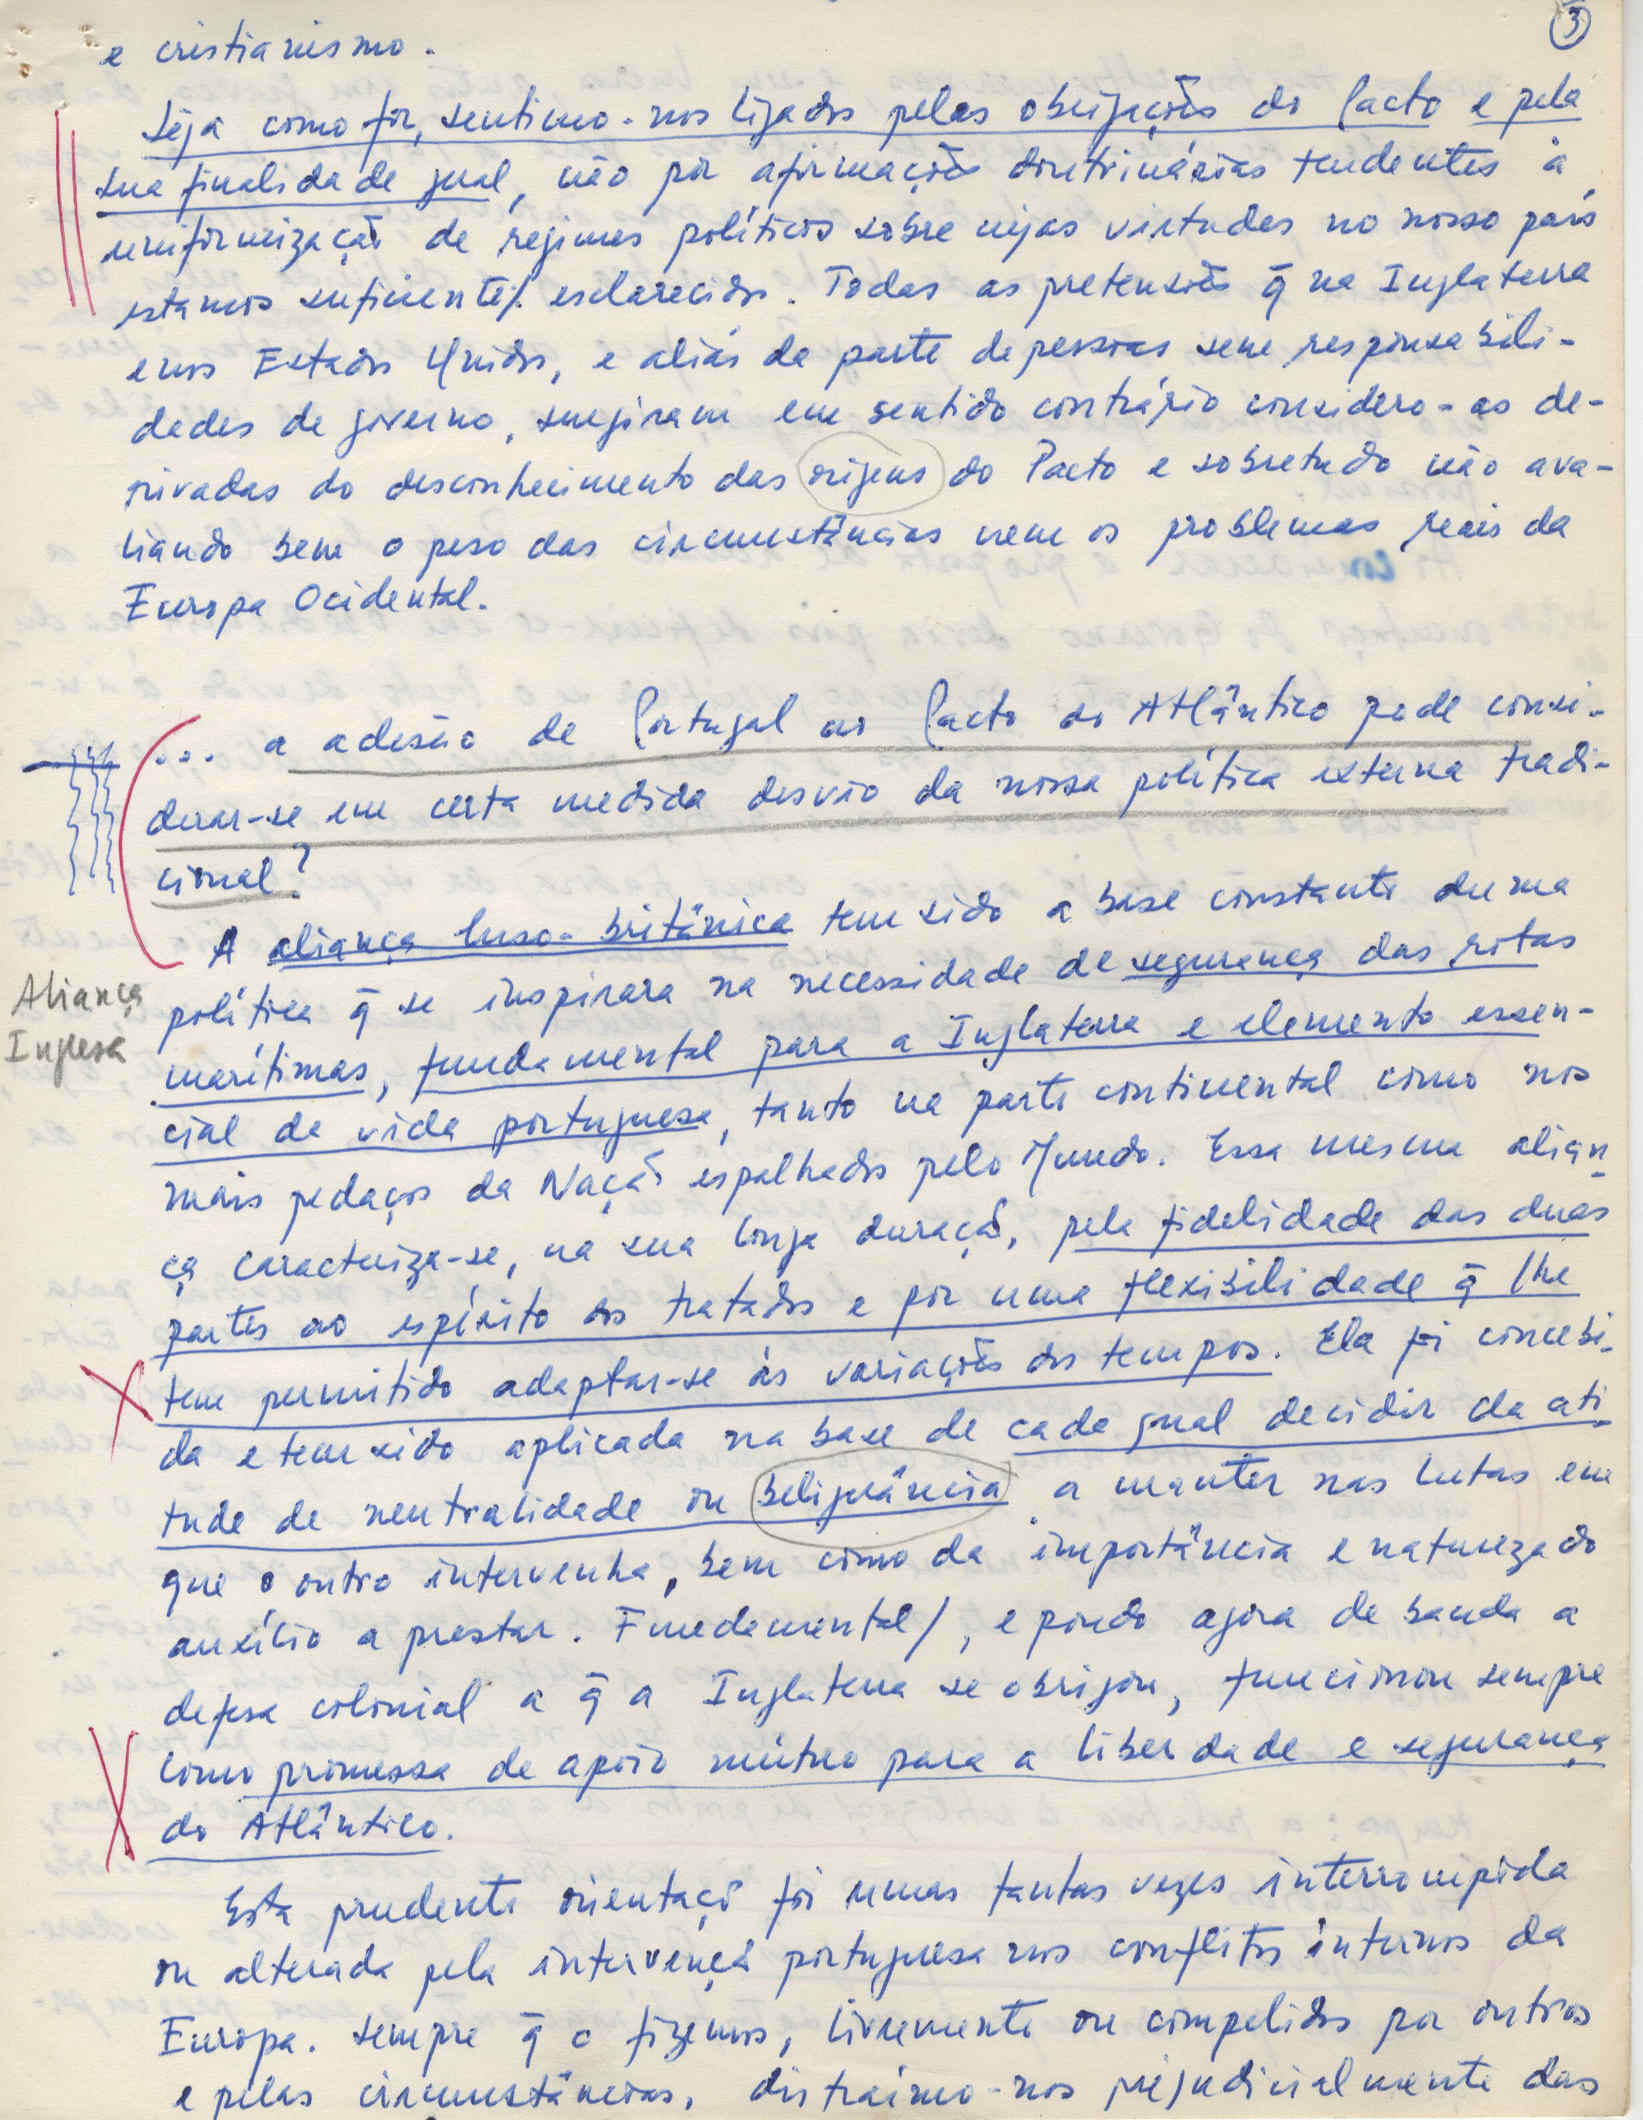 3
e cristianismo.
Seja como fôr, sentimo-nos ligados pelas obrigações do Pacto e pela
sua finalidade geral, não por afirmações doutrinárias tendentes à
uniformização de regimes políticos sobre cujas virtudes no nosso país
estamos suficiente/. esclarecidos. Todas as pretensões q̃ na Inglaterra
e nos Estados Unidos, e aliás da parte de pessoas sem responsabili-
dades de governo, surgiram em sentido contrário considero-as de-
rivadas do desconhecimento das origens do Pacto e sobretudo não ava-
liando bem o peso das circunstâncias nem os problemas reais da
Europa Ocidental.
... a adesão de Portugal ao Pacto do Atlântico pode consi-
derar-se em certa medida desvio da nossa política externa tradi-
cional?
A aliança luso-britânica tem sido a base constante duma
política q̃ se inspirara na necessidade de segurança das rotas
Aliança
Inglesa
marítimas, fundamental para a Inglaterra e elemento essen-
cial da vida portuguesa, tanto na parte continental como nos
mais pedaços da Nação espalhados pelo Mundo. Essa mesma alian-
ça caracteriza-se, na sua longa duração, pela fidelidade das duas
partes ao espírito dos tratados e por uma flexibilidade q̃ lhe
tem permitido adaptar-se às variações dos tempos. Ela foi concebi-
da e tem sido aplicada na base de cada qual decidir da ati-
tude de neutralidade ou beligerância a manter nas lutas em
que o outro intervenha, bem como da importância e natureza do
auxílio a prestar. Fundamental/, e pondo agora de banda a
defesa colonial a q̃ a Inglaterra se obrigou, funcionou sempre
como promessa de apoio mútuo para a liberdade e segurança
do Atlântico.
Esta prudente orientação foi umas tantas vezes interrompida
ou alterada pela intervenção portuguesa nos conflitos internos da
Europa. Sempre q̃ o fizemos, livremente ou compelidos por outros
e pelas circunstâncias, distraímo-nos prejudicialmente das